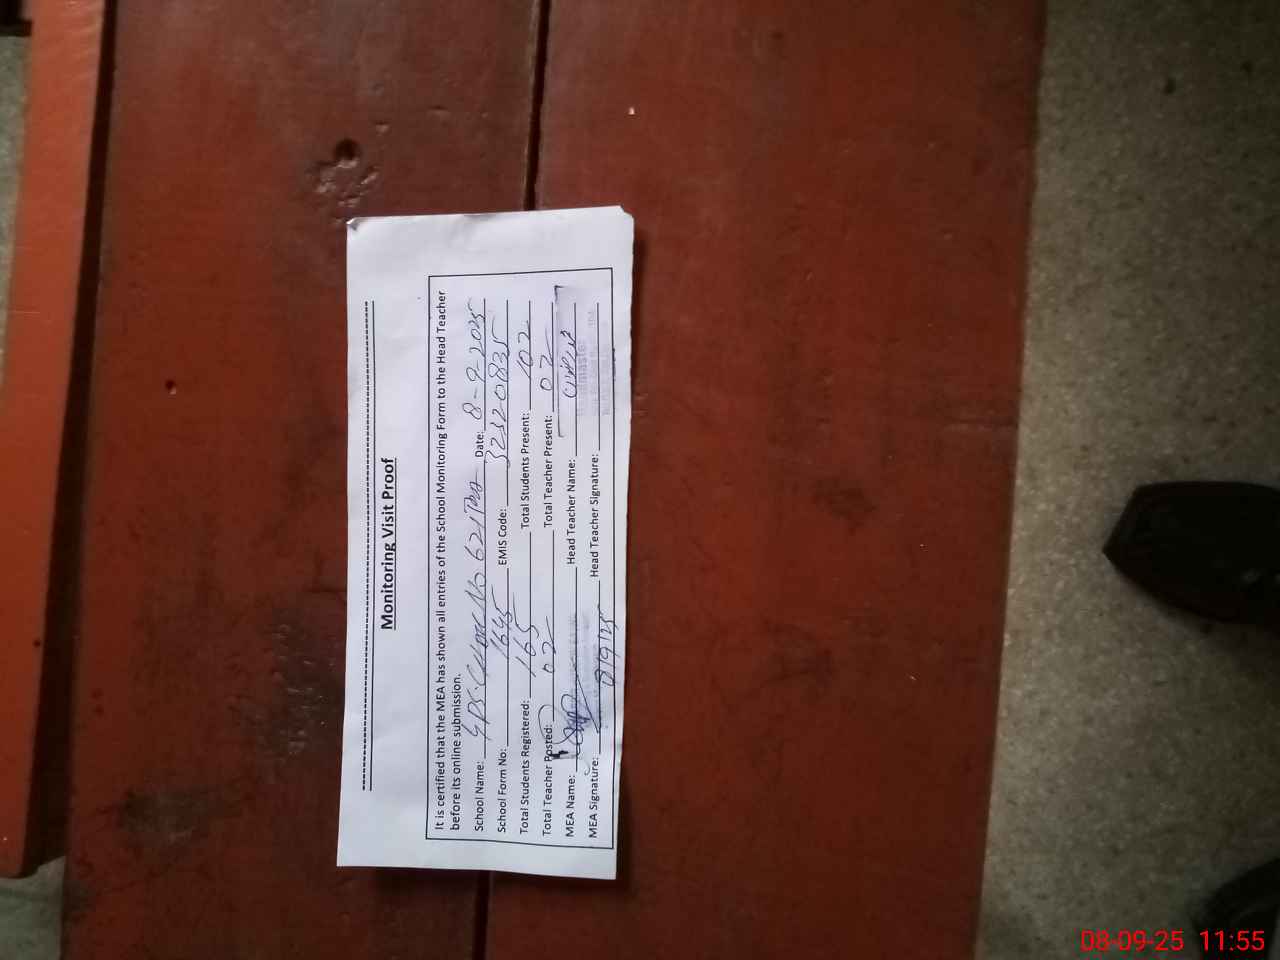 Monitoring Visit Proof
It is certified that the MEA has shown all entries of the School Monitoring Form to the Head Teacher
before its online submission.
School Name: GPS. Date: 8-9-2025
School Form No: 1645 EMIS Code: 32320835
Total Students Registered: 165 Total Students Present: 102
Total Teacher Posted: 02 Total Teacher Present: 02
MEA Name: Head Teacher Name:
MEA Signature: 8/9/25 Head Teacher Signature:
08-09-25 11:55